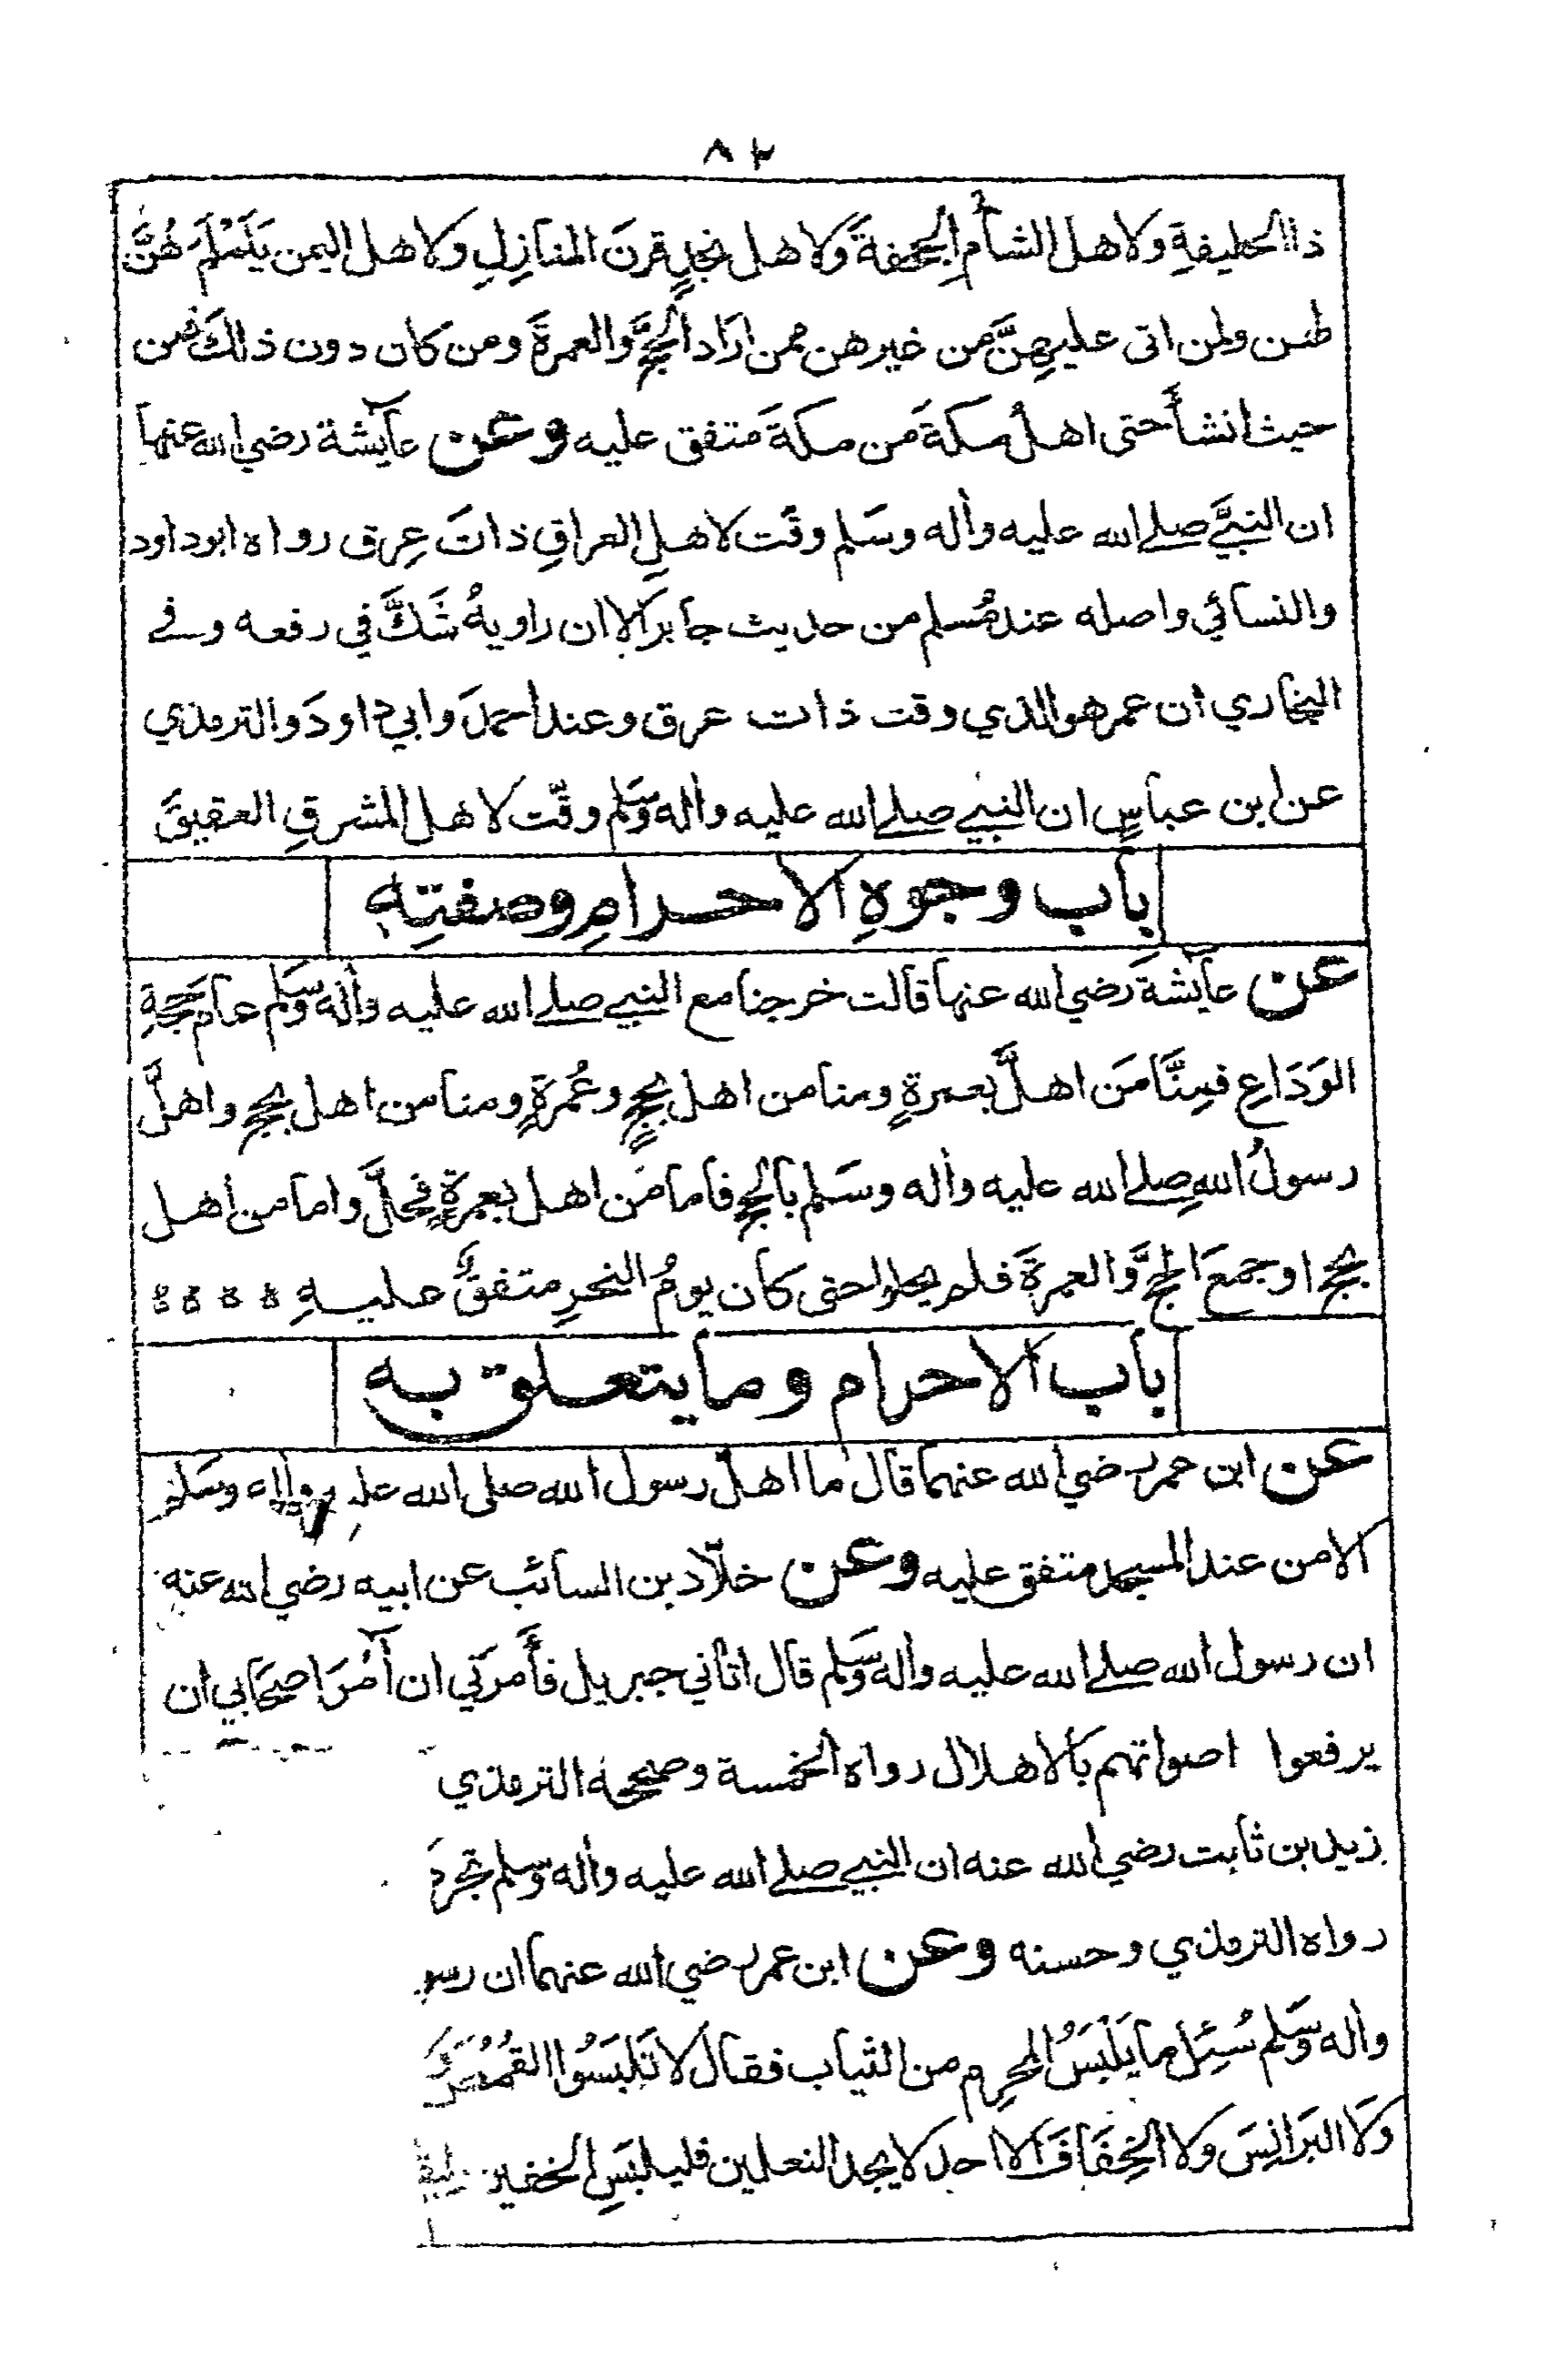 ٨٢
ذا الحليفةِ ولاهل الشأم الجحفةَ ولاهل نجدٍ قرنَ المنازِلِ ولاهل اليمن يَلَمْلَمَ هُنَّ
لهن ولمن اتى عليهِنَّ من غيرهن ممن ارَاد الحجَّ والعمرةَ ومن كان دون ذلكَ فمن
حيث انشأَ حتى اهلُ مكةَ من مكةَ متفق عليه وعن عآيشة رضي الله عنها
ان النبيَّ صلے الله عليه واٰله وسَلم وقَّت لاهلِ العراقِ ذاتَ عِرق رواه ابوداود
والنسآئي واصله عند مُسلم من حديث جابر الا ان راويهُ شَكَّ في رفعه وفے
البخاري ان عمر هو الذي وقت ذات عرق وعند احمدَ وابي داودَ والترمذي
عن ابن عباسٍ ان النبيے صلے الله عليه واٰله وسَلم وقَّت لاهل المشرقِ العقيقَ
باب وجوهِ الاحرامِ وصفتِهِ
عن عآيشةَ رضي الله عنها قالت خرجنا مع النبيے صلے الله عليه واٰله وسَلم عام حَجةِ
الوَدَاعِ فمِنَّا مَن اهلَّ بعمرةٍ ومنا من اهل بحجٍ وعُمرَةٍ ومنا من اهل بحج واهلَّ
رسولُ اللهِ صلے الله عليه واٰله وسَلم بالحجِ فاما مَن اهل بعمرةٍ فحلَّ واما من اهل
بحج او جمعَ الحجَّ والعمرةَ فلم يحلوا حتى كان يومُ النحرِ متفقٌ عليهِ ۃ ۃ ۃ ۃ
باب الاحرام وما يتعلق به
عن ابن عمر رضي الله عنهما قال ما اهلّ رسول الله صلى الله عليه واٰله وسَلم
الا من عند المسجد متفق عليه وعن خلّاد بن السائب عن ابيه رضي الله عنه
ان رسول الله صلے الله عليه واٰله وسَلم قال اتاني جبريل فأَمرَني ان آمُرَ اصحَابي ان
يرفعوا اصواتهم بالاهلال رواه الخمسة وصححه الترمذي
زيد بن ثابت رضي الله عنه ان النبيے صلے الله عليه واٰله وسلم تجرد
رواه الترمذي وحسنه وعن ابن عمر رضي الله عنهما ان رسو
واٰله وسَلم سُئِل ما يَلْبَسُ المحرِم من الثياب فقال لا تَلبَسُوا القُمُصَ وَ
وَلا البَرانِسَ ولا الخِفَافَ الا احد لا يجد النعلين فليلبَسِ الخفين